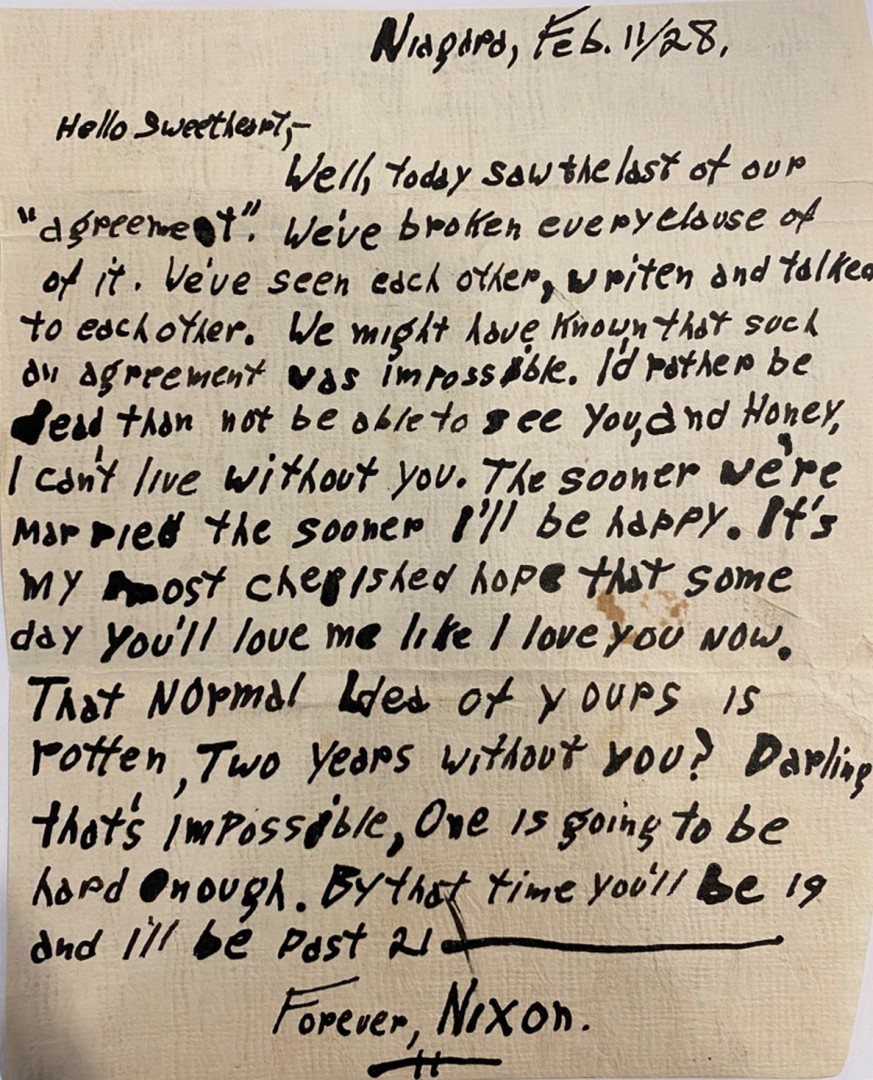 Niagara, Feb. 11/28.
Hello Sweetheart,-
Well, today saw the last of our
"agreement". We've broken every clause of
of it. We've seen each other, writen and talked
to each other. We might have known that such
an agreement was impossible. I'd rather be
dead than not be able to see you, and Honey,
I can't live without you. The sooner we're
married the sooner I'll be happy. It's
my most cherished hope that some
day you'll love me like I love you now.
That Normal Idea of yours is
rotten, Two years without you? Darling
that's impossible, One is going to be
hard enough. By that time you'll be 19
and I'll be past 21
Forever, Nixon.